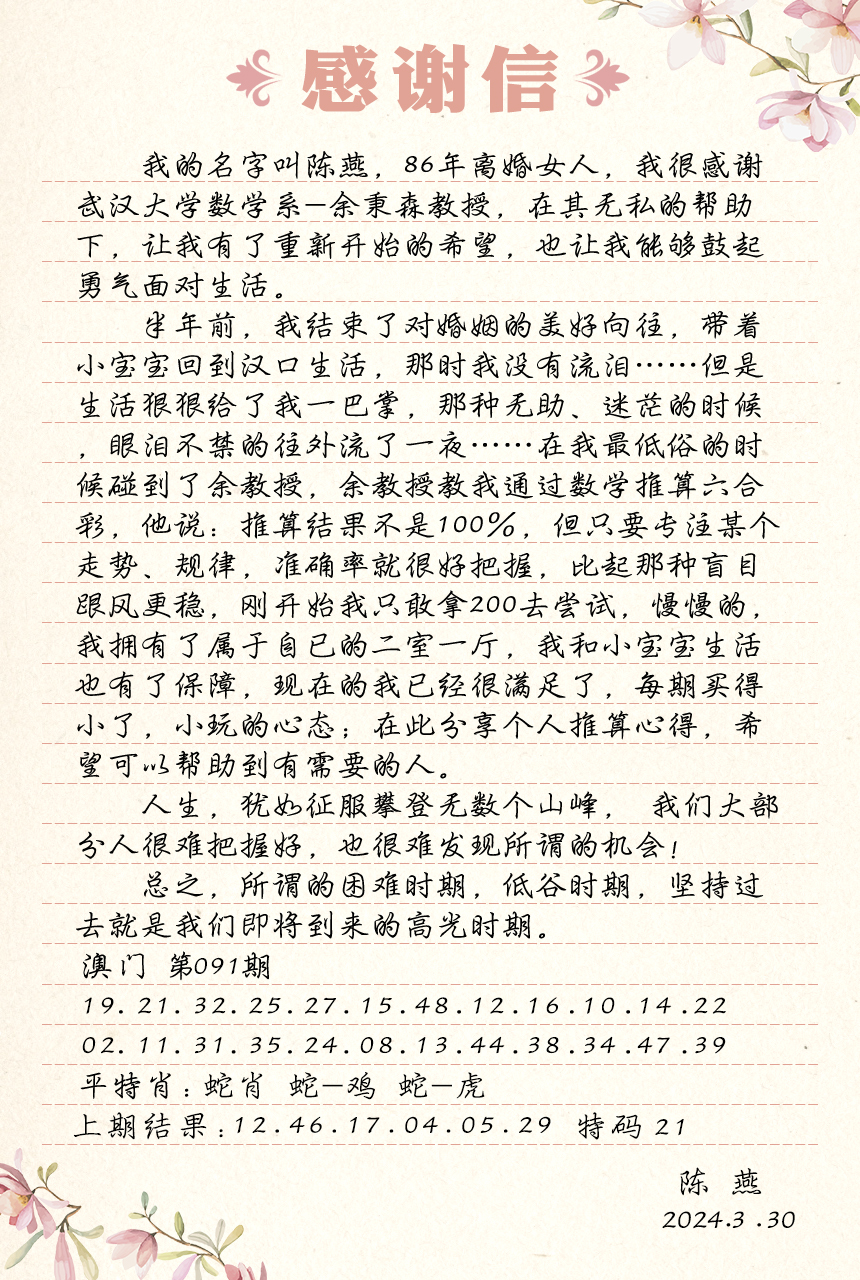 感谢信
我的名字叫陈燕，86年离婚女人，我很感谢
武汉大学数学系—余秉森教授，在其无私的帮助
下，让我有了重新开始的希望，也让我能够鼓起
勇气面对生活。
半年前，我结束了对婚姻的美好向往，带着
小宝宝回到汉口生活，那时我没有流泪……但是
生活狠狠给了我一巴掌，那种无助、迷茫的时候
，眼泪不禁的往外流了一夜……在我最低俗的时
候碰到了余教授，余教授教我通过数学推算六合
彩，他说：推算结果不是100%，但只要专注某个
走势、规律，准确率就很好把握，比起那种盲目
跟风更稳，刚开始我只敢拿200去尝试，慢慢的，
我拥有了属于自已的二室一厅，我和小宝宝生活
也有了保障，现在的我已经很满足了，每期买得
小了，小玩的心态；在此分享个人推算心得，希
望可以帮助到有需要的人。
人生，犹如征服攀登无数个山峰， 我们大部
分人很难把握好，也很难发现所谓的机会！
总之，所谓的困难时期，低谷时期，坚持过
去就是我们即将到来的高光时期。
澳门 第091期
19.21.32.25.27.15.48.12.16.10.14.22
02.11.31.35.24.08.13.44.38.34.47.39
平特肖：蛇肖 蛇—鸡 蛇—虎
上期结果：12.46.17.04.05.29 特码 21
陈 燕
2024.3.30